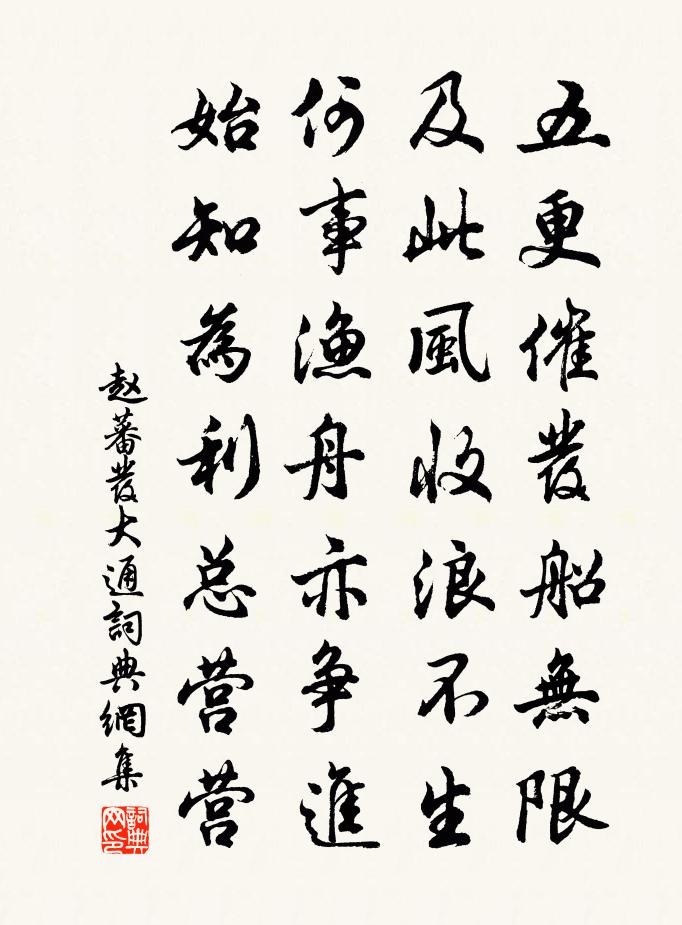 五更催發船無限
及此風收浪不生
何事漁舟亦争進
始知為利总营营
赵蕃發大通詞典網集
詞典网印